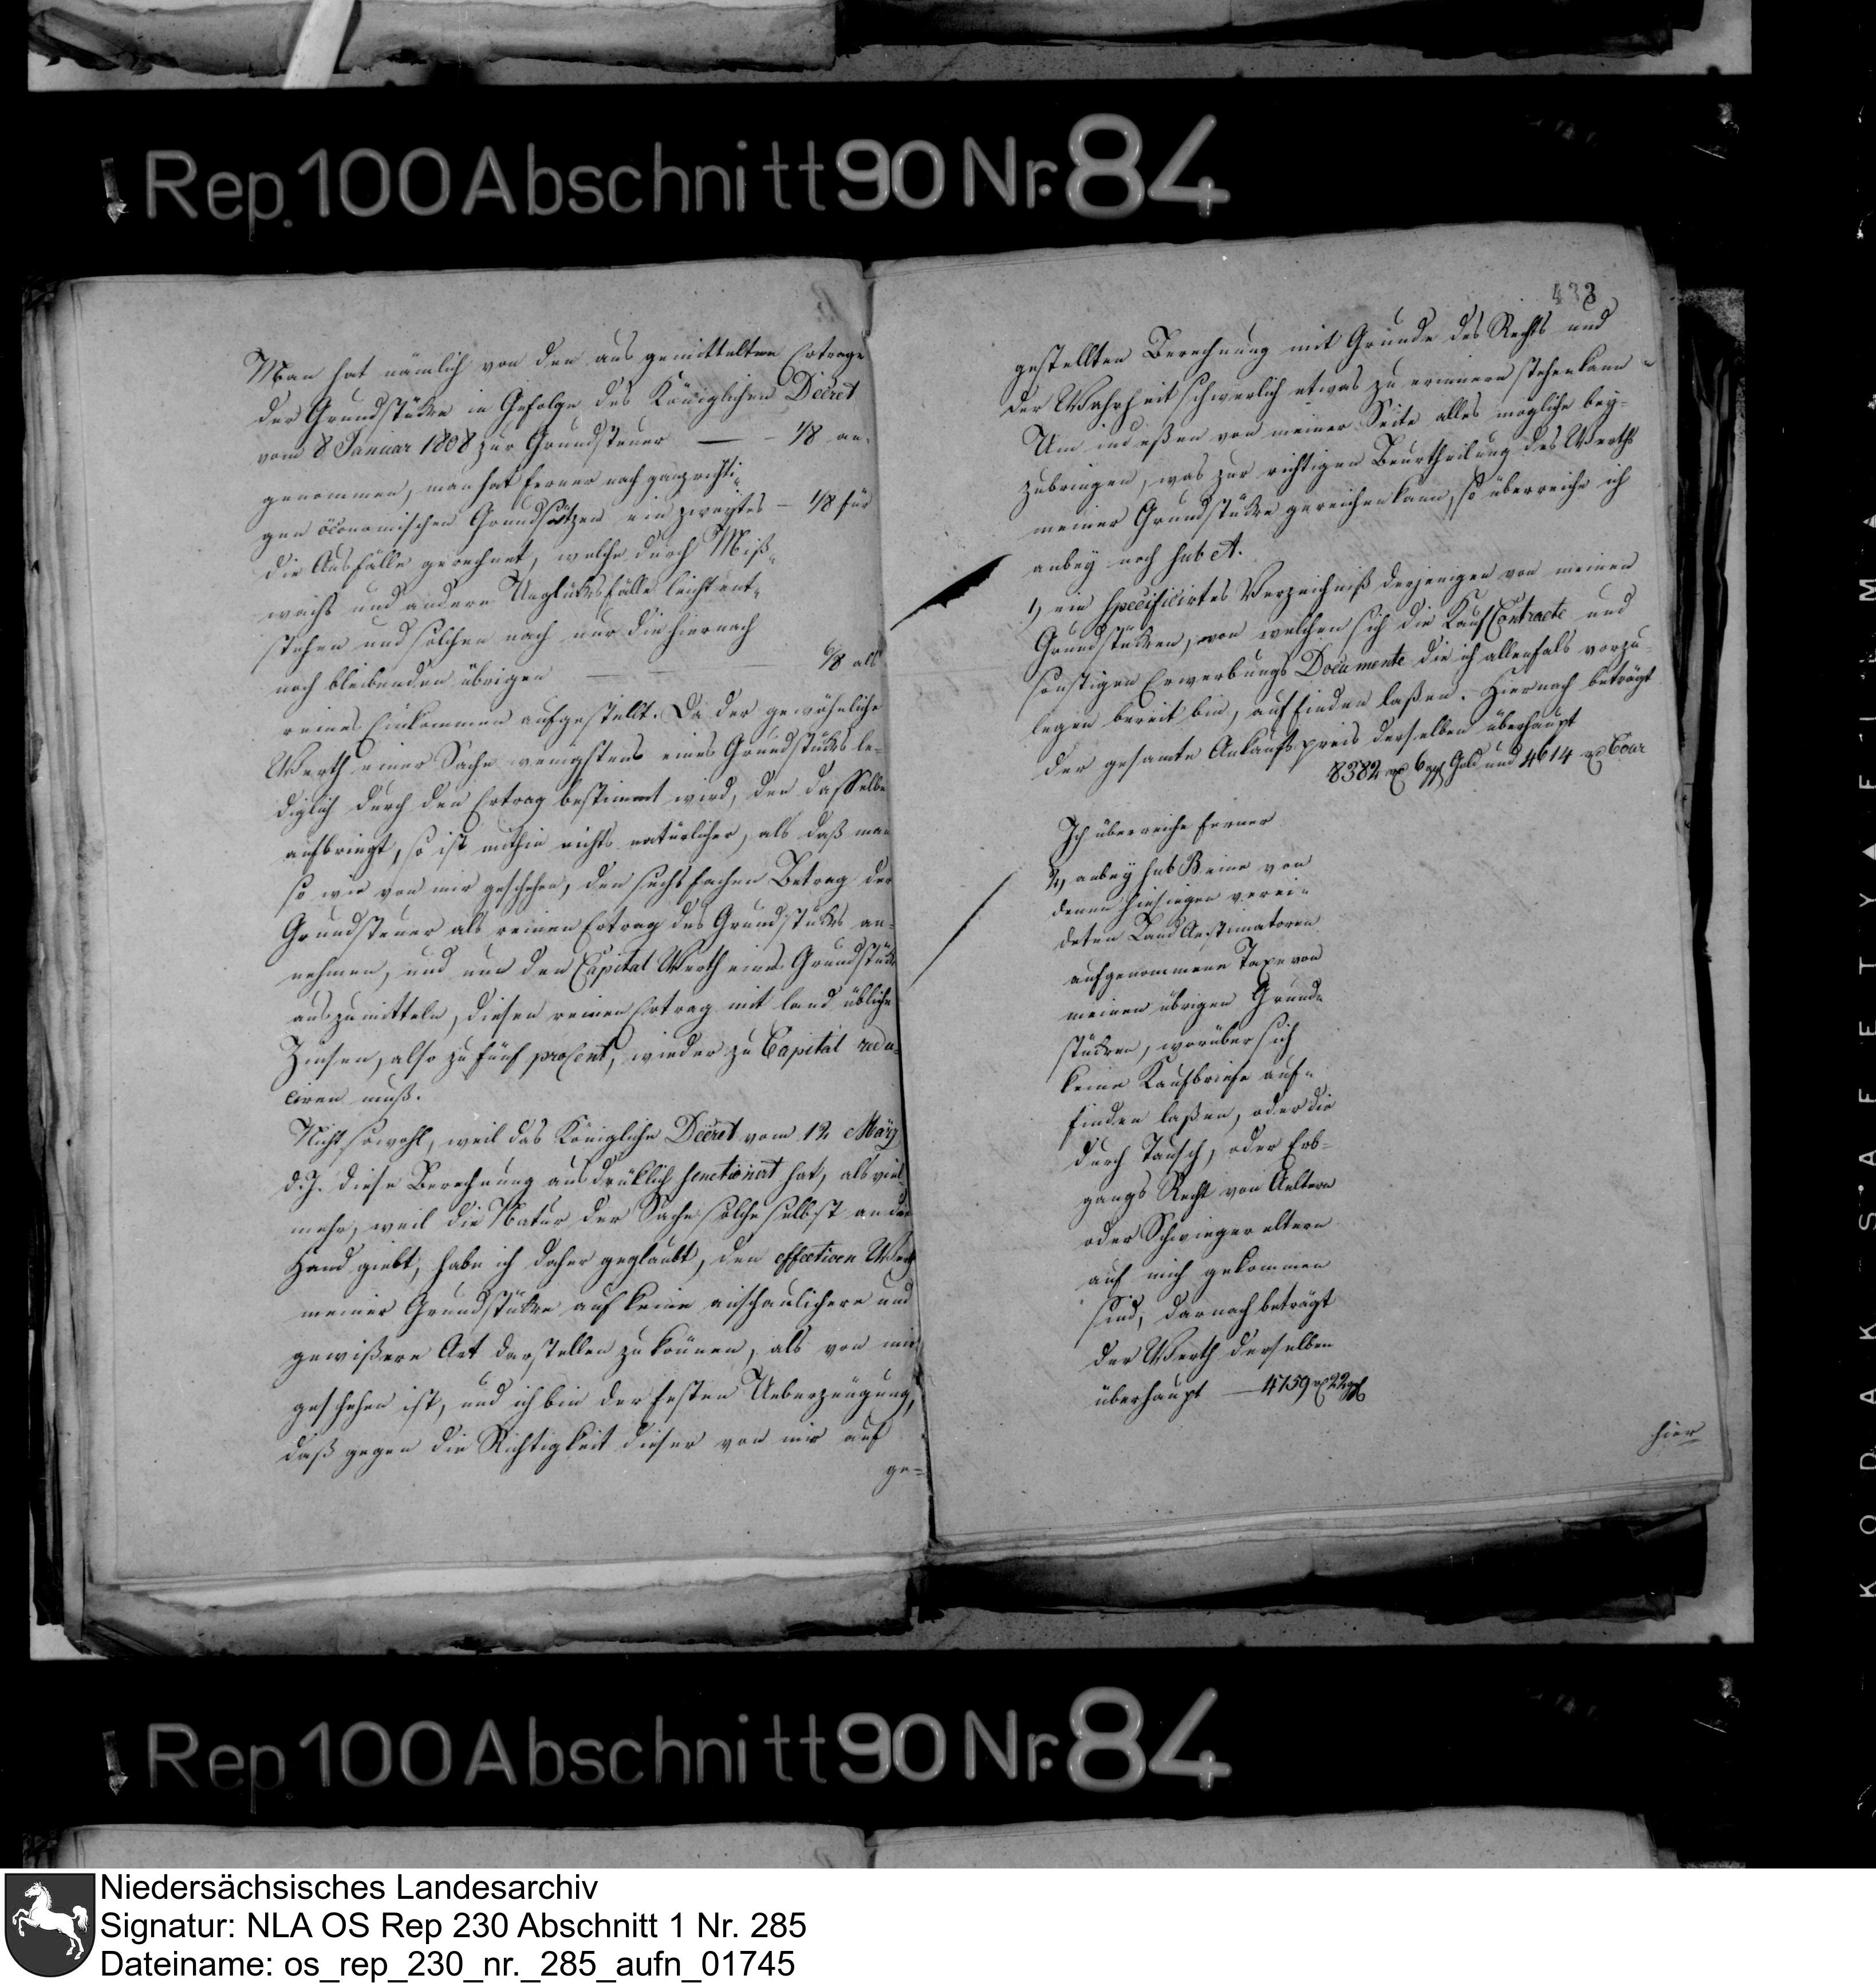 Rep. 100 Abschnitt 90 Nr. 84
Man hat nämlich von den aus gemittelten Ertrage
der Grundstücke in Gefolge des Königlichen Decret
vom 8 Januar 1808 zur Grundsteuer — - 1/8 an-
genommen, man hat ferner nach ganz richti-
gen öconomischen Grundsätzen ein zweytes - 1/8 für
die Ausfälle gerechnet, welche durch Miß-
wachs und andere Unglücksfälle leicht ent-
stehen und solchen nach nur die hiernach
noch bleibenden übrigen — — 6/8 als
reines Einkommen aufgestellt. Da der gewöhnliche
Werth einer Sache wenigstens eines Grundstücks le-
diglich durch den Ertrag bestimmt wird, den dasselbe
aufbringt, so ist mithin nichts natürlicher, als daß man
so wie von mir geschehen, den sechsfachen Betrag der
Grundsteuer als reinen Ertrag des Grundstücks an-
nehmen, und um den Capital Werth eines Grundstücks
auszumitteln, diesen reinen Ertrag mit land übliche
Zinsen, also zu fünf proCent, wieder zu Capital redu-
ciren muß.
Nicht sowohl, weil das Königliche Decret vom 12 März
d. J. diese Berechnung ausdrüklich senctionirt hat, als viel-
mehr, weil die Natur der Sache solche selbst an die
Hand giebt, habe ich daher geglaubt, den effectiven Werth
meiner Grundstücke auf keine anschaulichere und
gewißere Art darstellen zu können, als von mir
geschehen ist, und ich bin der festen Ueberzeugung,
daß gegen die Richtigkeit dieser von mir auf
ge-
433
gestellten Berechnung mit Grunde des Rechts und
der Wahrheit schwerlich etwas zu erinnern stehen kann
Um indeßen von meiner Seite alles mögliche bey-
zubringen, was zur richtigen Beurtheilung des Werths
meiner Grundstücke gereichen kann, so überreiche ich
anbey noch sub A.
1, ein specificirtes Verzeichniß derjenigen von meinen
Grundstücken, von welchen sich die Kauf Contracte und
sonstigen Erwerbungs Documente die ich allenfals vorzu-
legen bereit bin, auffinden laßen. Hiernach beträgt
der gesamte Ankaufspreis derselben überhaupt
8382 rt 6 ggl Gold und 4614 rt Cour
Ich überreiche ferner
2, anbey sub B eine von
denen hiesigen verei-
deten Land Aestimatoren
aufgenommene Taxe von
meinen übrigen Grund-
stücken, worüber sich
keine Kaufbriefe auf-
finden laßen, oder die
durch Tausch, oder Erb-
gangs Recht von Aeltern
oder Schwiegereltern
auf mich gekommen
sind, darnach beträgt
der Werth derselben
überhaupt — 4759 rt 22 ggl
hier
Rep. 100 Abschnitt 90 Nr. 84
KODAK SAFETY FILM
Niedersächsisches Landesarchiv
Signatur: NLA OS Rep 230 Abschnitt 1 Nr. 285
Dateiname: os_rep_230_nr._285_aufn_01745